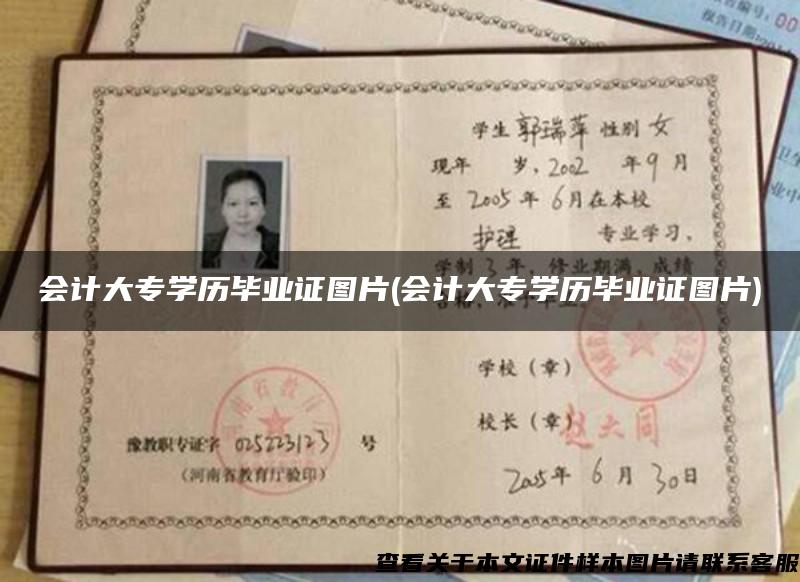 告编号:00
报告日期:201
学生 郭瑞萍 性别 女
现年 岁,2002 年 9 月
至 2005 年 6 月在本校
护理 专业学习,
学制 3 年,修业期满,成绩
会计大专学历毕业证图片(会计大专学历毕业证图片)
合格,准予毕业。
学校(章)
校长(章)赵大同
2005 年 6 月 30 日
豫教职专证字 025223123 号
(河南省教育厅验印)
河南省教育厅
查看关于本文证件样本图片请联系客服